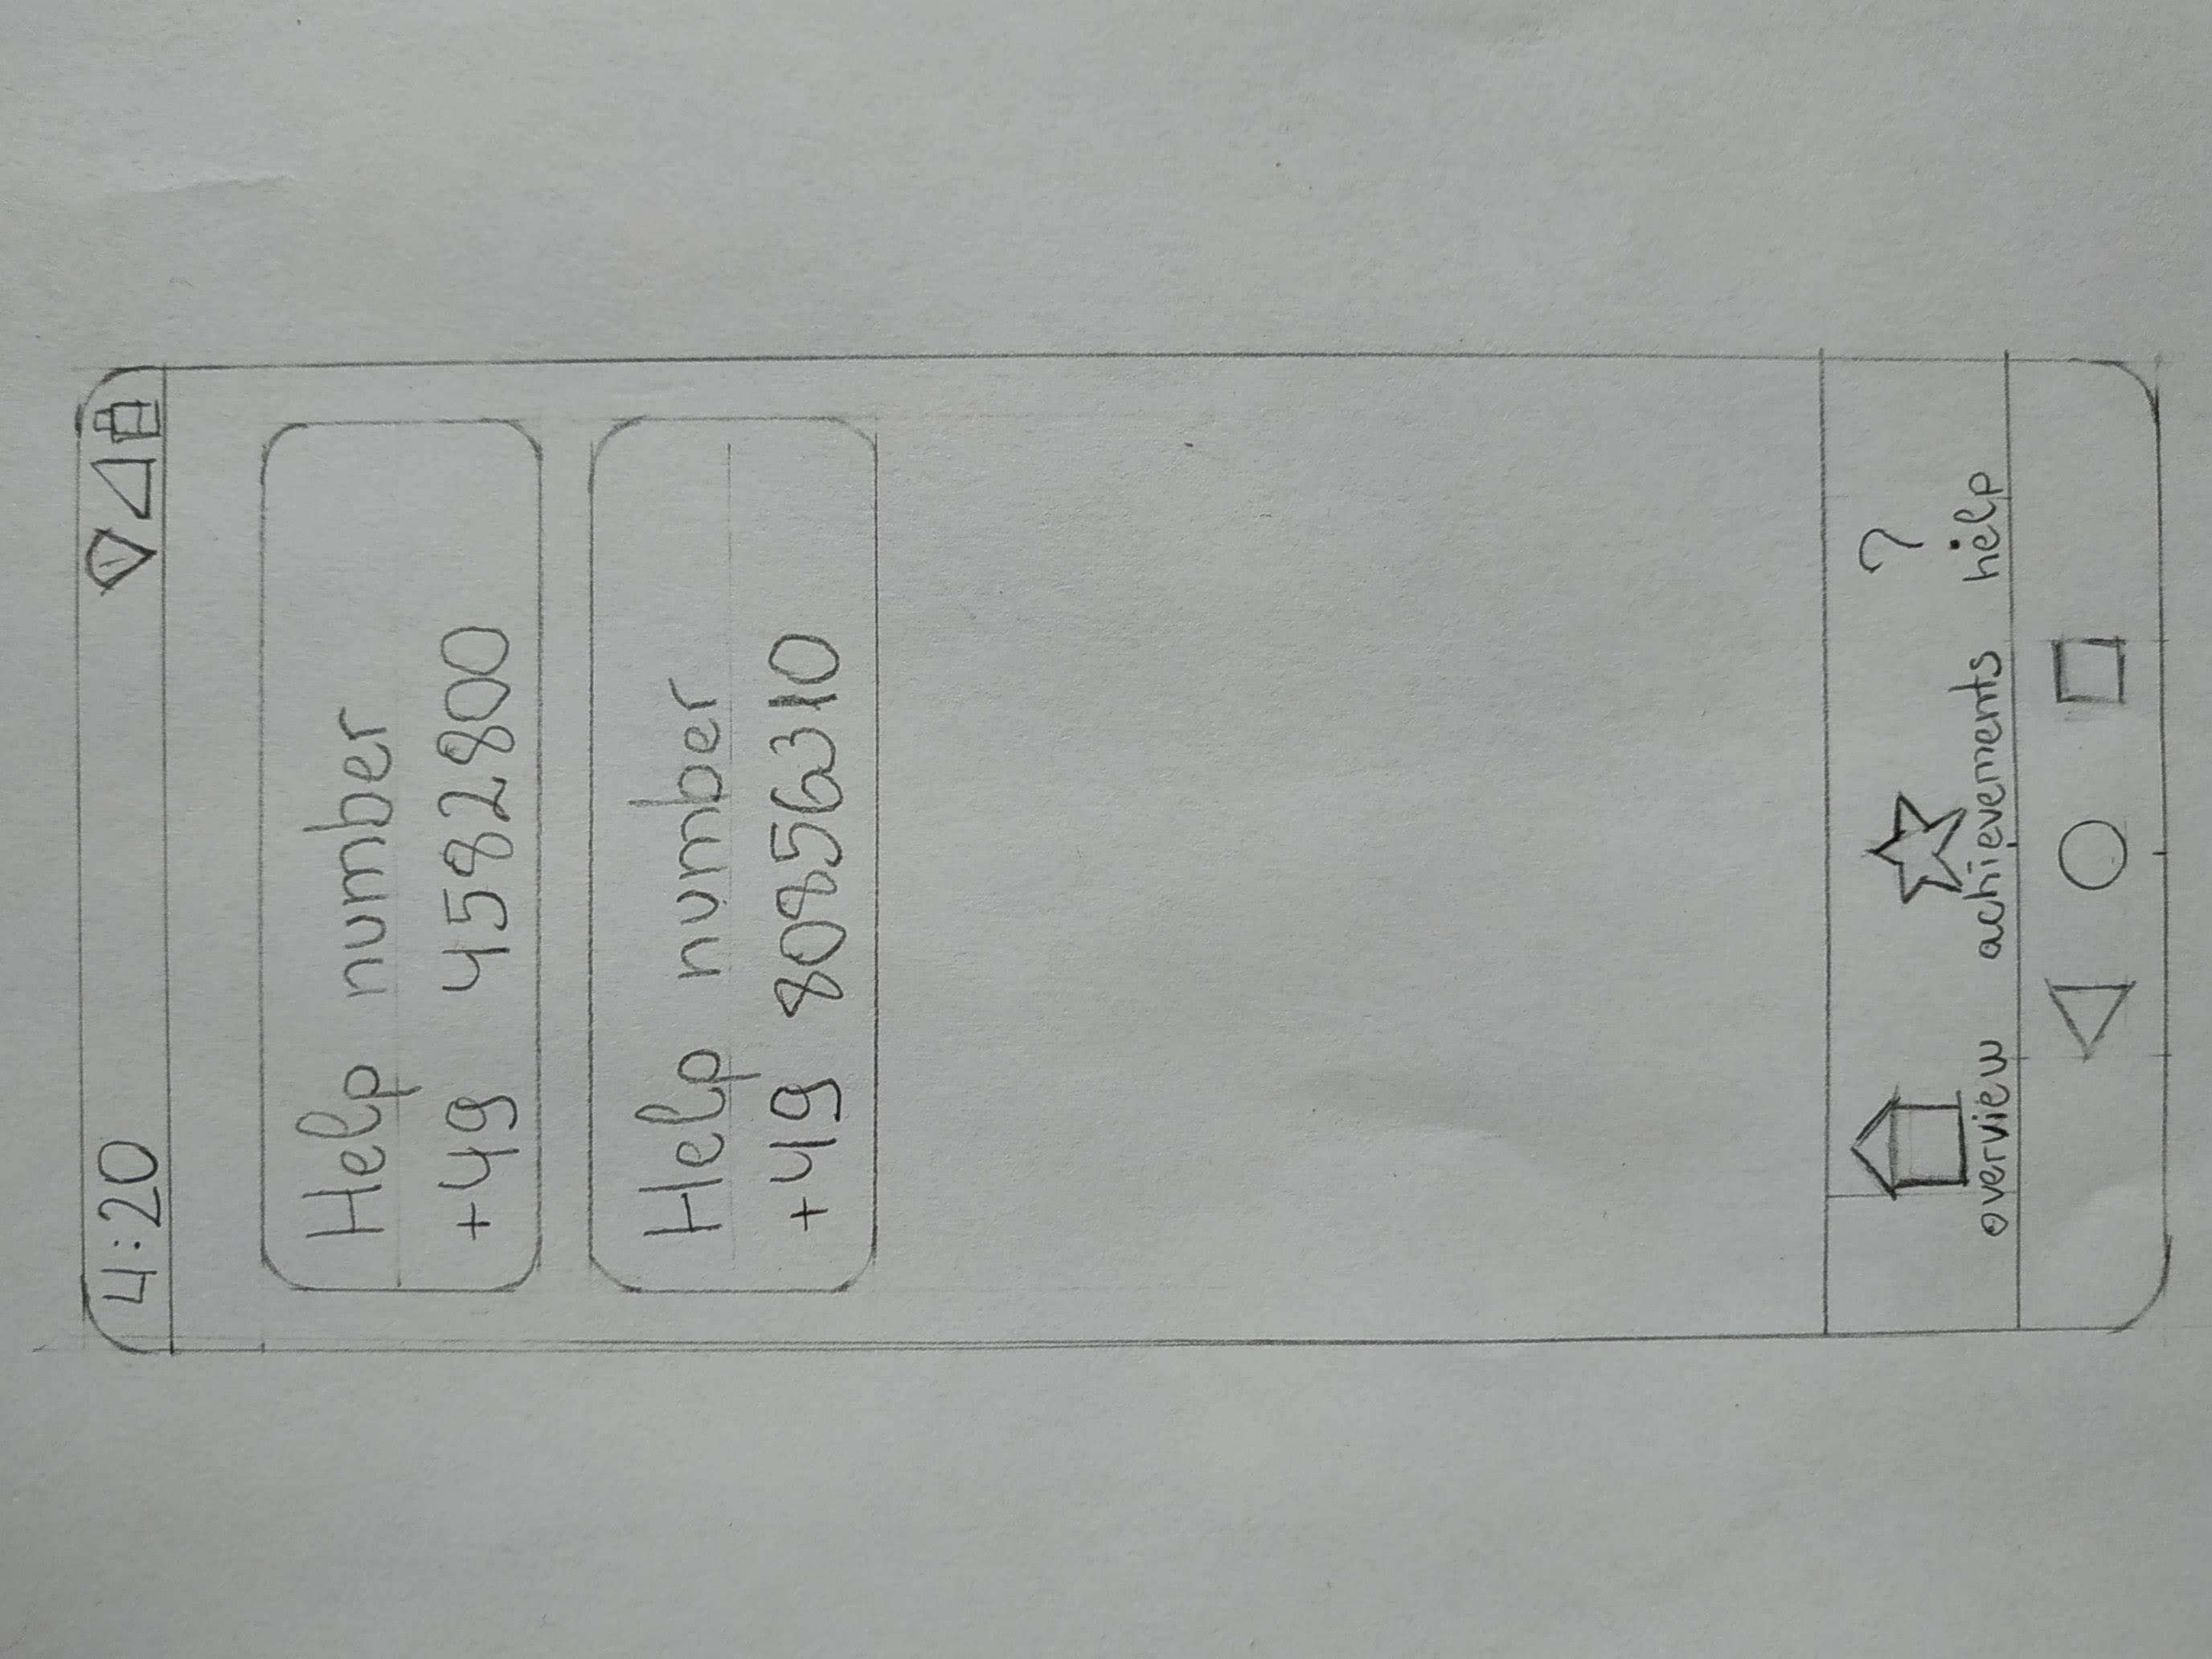 4:20
Help number
+49 4582800
Help number
+49 80856310
?
overview achievements help